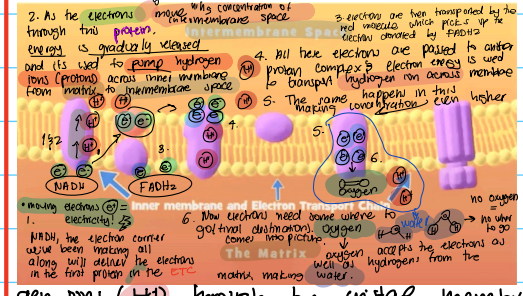 2. As the electrons move
through this protein,
energy is gradually released
and its used to pump hydrogen
ions (protons) across inner membrane
from matrix to intermembrane space
H+ concentration of
intermembrane space
Intermembrane Space
3. electrons are then transported by the
red molecule which picks up the
electron donated by FADH2
4. All these electrons are passed to another
protein complex & electron energy is used
to transport hydrogen ion across membrane
5. The same happens in this
making concentration even higher
H+
H+
H+
H+
H+
H+
H+
e-
e-
e-
e-
4.
5.
1 & 2
3.
6.
NADH
FADH2
oxygen
H+
H+
• moving electrons =
electricity!
Inner membrane and Electron Transport Chain
1.
NADH, the electron carrier
we've been making all
along will deliver the electrons
in the first protein in the ETC
6. Now electrons need some where to
go (final destination). Oxygen
comes into picture
water
no oxygen
=
no where
to go
oxygen accepts the electrons as
well as hydrogens from the
matrix making water.
The Matrix